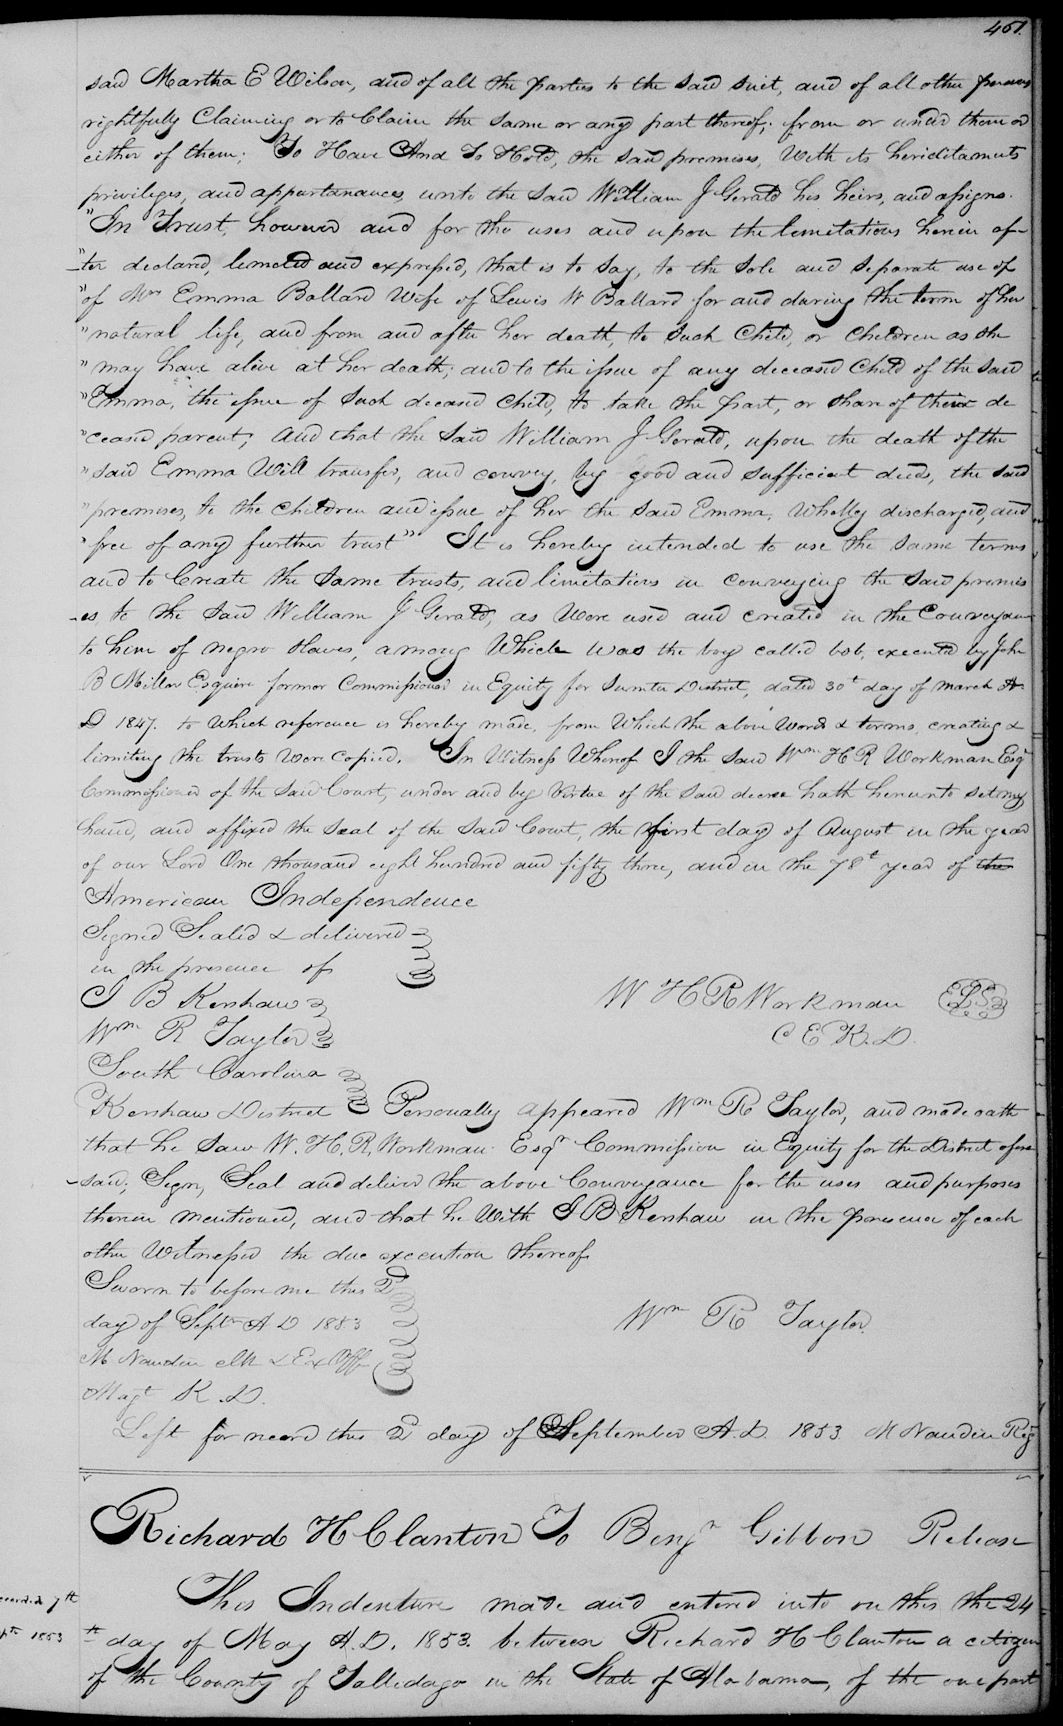 461.
said Martha E Wilson, and of all the parties to the said suit, and of all other persons
rightfully Claiming or to Claim the same or any part thereof; from or under them or
either of them; To Have And To Hold, the said premises, With its heriditaments
privileges, and appurtanances, unto the said William J Gerald his heirs, and assigns.
"In Trust, however and for the uses and upon the limitations herein af-
"-ter declared, limited and expressed, that is to say, to the sole and separate use of
"of Mrs Emma Ballard Wife of Lewis W Ballard for and during the term of her
"natural life, and from and after her death, to such Child, or children as she
"may have alive at her death; and to the issue of any deceased Child of the said
"Emma, the issue of such deceased child, to take the part, or share of their de
"ceased parent; And that the said William J Gerald, upon the death of the
"said Emma Will transfer, and convey, by good and sufficient deeds, the said
"premises, to the children and issue of her the said Emma, Wholly discharged, and
"free of any further trust" It is hereby intended to use the same terms
and to Create the same trusts, and limitations in conveying the said premis
-es to the said William J Gerald, as Were used and created in the Conveyance
to him of negro slaves, among Which was the boy called bob, executed by John
B Miller Esquire former Commissioner in Equity for Sumter District, dated 30t day of march A.
D 1847. to Which reference is hereby made, from Which the above Words & terms, creating &
limiting the trusts Were Copied. In Witness Whereof I the said Wm H R Workman Esqr
Commissioner of the said Court, under and by virtue of the said decree hath hereunto set my
hand, and affixed the Seal of the said Court, the first day of August in the year
of our Lord One thousand eight hundred and fifty three, and in the 78t year of the
American Independence
Signed Sealed & delivered
in the presence of
J B Kershaw W H R Workman L S
Wm R Taylor C E K. D.
South Carolina
Kershaw District Personally appeared Wm R Taylor, and made oath
that he saw W. H. R. Workman Esqr Commission in Equity for the District afore
-said; Sign, Seal and deliver the above Conveyance for the uses and purposes
therein mentioned, and that he With J B Kershaw in the presence of each
other Witnessed the due execution thereof
Sworn to before me this 2d
day of Septr A D 1853 Wm R Taylor
M Naudin clk & Ex Off
Magt K. D.
Left for record this 2d day of September A. D. 1853 M Naudin Reg
Richard H Clanton To Benjn Gibbon Release
This Indenture made and entered into on this the 24
th day of May A. D. 1853. between Richard H Clanton a citizen
of the County of Talledago in the State of Alabama, of the one part